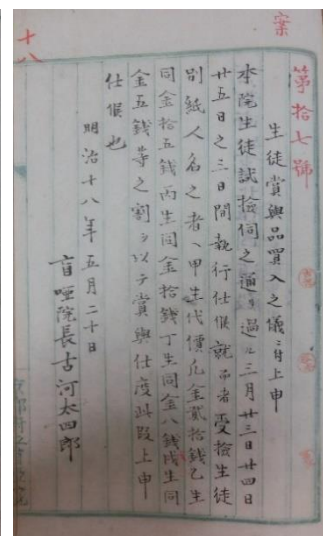 案
第拾七號
生徒賞與品買入之儀ニ付上申
本院生徒試撿伺之通リ過ル三月廿三日廿四日
廿五日之三日間執行仕候就而者受撿生徒
別紙人名之者ヘ甲生代價凡金貳拾錢乙生
同金拾五錢丙生同金拾錢丁生同金八錢戊生同
金五錢等之割ヲ以テ賞與仕度此段上申
仕候也
明治十八年五月二十日
盲啞院長古河太四郎
十八